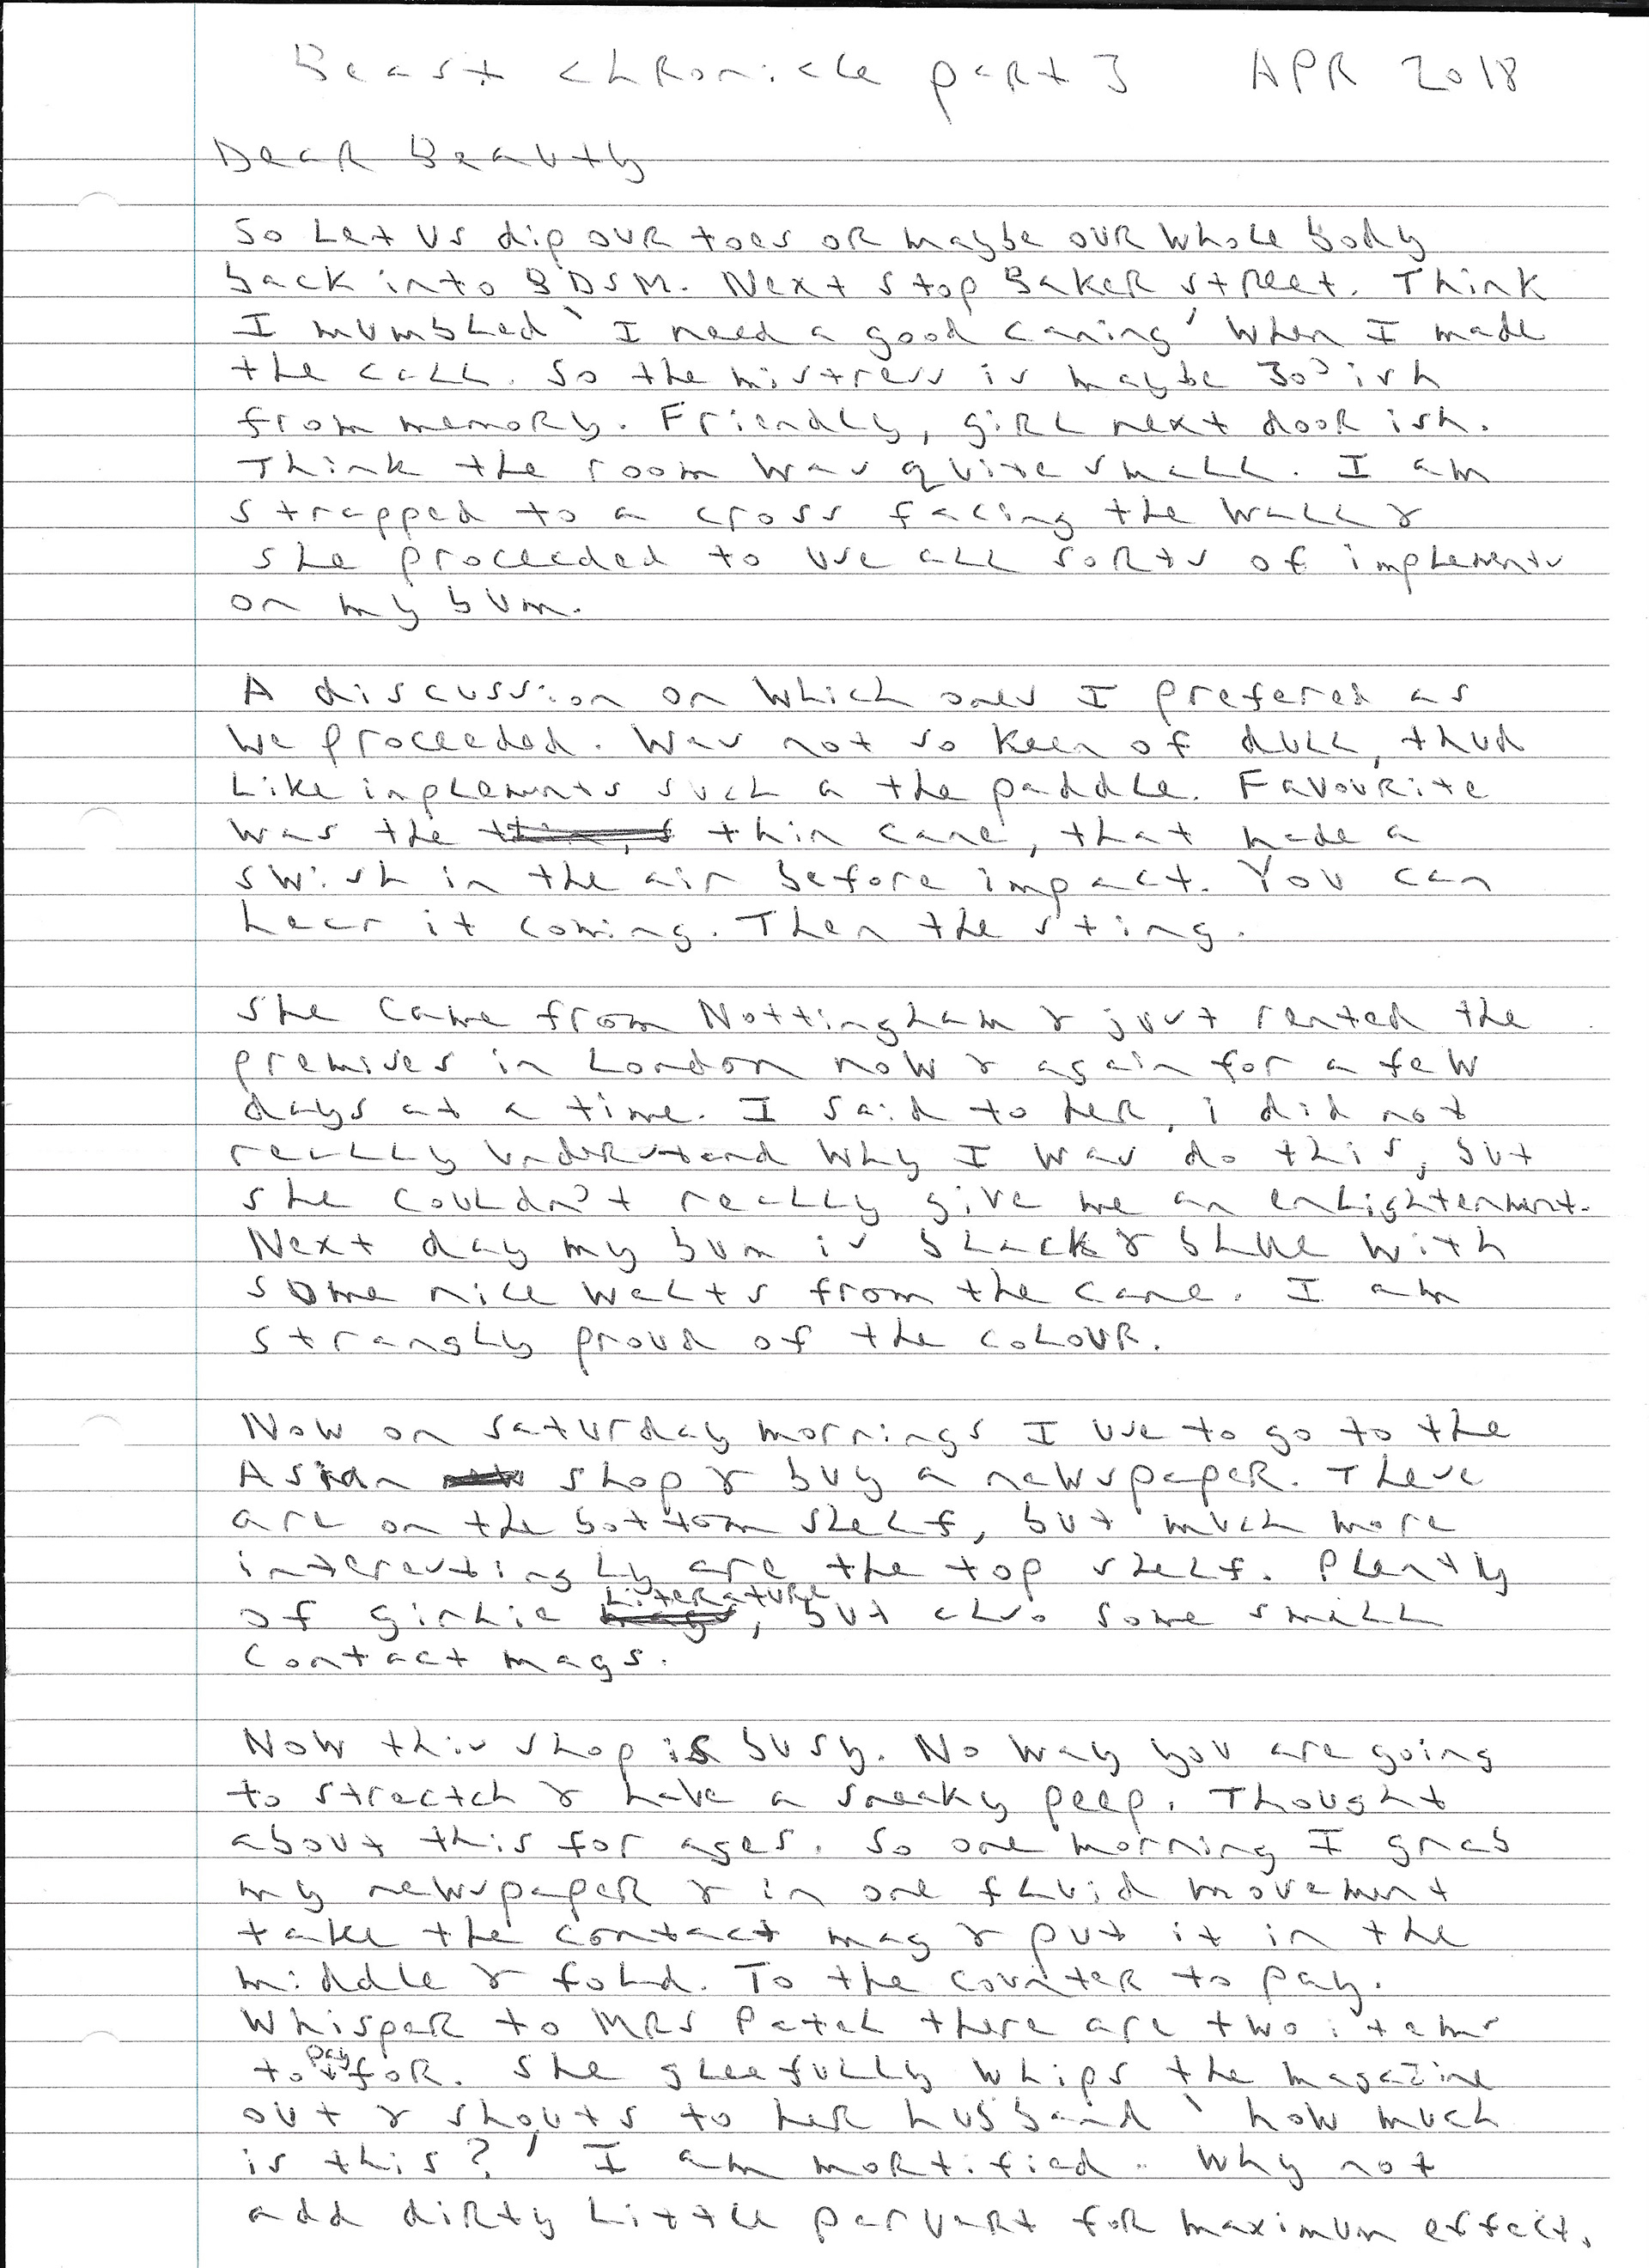 Beast chronicle part 3 APR 2018
Dear Beauty
So let us dip our toes or maybe our whole body
back into BDSM. Next stop Baker street. Think
I mumbled 'I need a good caning' when I made
the call. So the mistress is maybe 30'ish
from memory. Friendly, girl next door ish.
Think the room was quite small. I am
strapped to a cross facing the wall &
she proceeded to use all sorts of implements
on my bum.
A discussion on which ones I prefered as
we proceeded. Was not so keen of dull, thud
like implements such a the paddle. Favourite
was the thin cane, that made a
swish in the air before impact. You can
hear it coming. Then the sting.
She came from Nottingham & just rented the
premises in London now & again for a few
days at a time. I said to her, i did not
really understand why I was do this, but
she couldn't really give me an enlightenment.
Next day my bum is black & blue with
some nice walts from the cane. I am
strangly proud of the colour.
Now on saturday mornings I use to go to the
Asian shop & buy a newspaper. These
are on the bottom shelf, but much more
interestingly are the top shelf. Plently
of girlie literature, but also some small
contact mags.
Now this shop is busy. No way you are going
to stractch & have a sneaky peep. Thought
about this for ages. So one morning I grab
my newspaper & in one fluid movement
take the contact mag & put it in the
middle & fold. To the counter to pay.
Whisper to Mrs Patel there are two items
to pay for. She gleefully whips the magazine
out & shouts to her husband 'how much
is this?' I am mortified. Why not
add dirty little pervert for maximum effect.